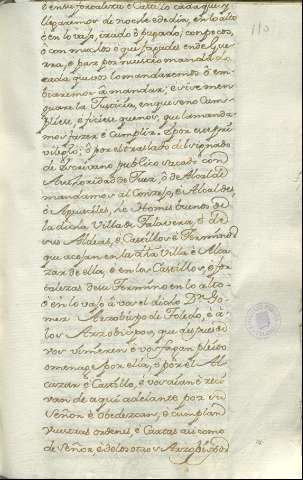 110
llegaremos de noche e de dia, en lo alto
o en lo vajo, irado ó pagado, con pocos,
ó con muchos
rra, e paz por nuestro mandado,
cada que vos lo mandaremos ó em-
biaremos á mandar; e si ve men-
guare la Justicia, en que vos Cum-
pliese, e ficiese
mos fazer é cumplir. E por este pri-
vilegio, ó por el traslado de el signado
de Escrivano publico sacado con
Authoridad de Juez, ó de Alcalde
mandamos al Conzejo, é Alcaldes,
é Aguaciles, é Homes buenos de
la dicha Villa de Talavera, é de
sus Aldeas, é Castillos é Termino
que acojan en la dha Villa é Alca-
zar de ella, e en los Castillos, é for-
talezas de su Termino en lo alto
ó en lo vajo á vos el dicho Dn. Go-
mez Arzobispo de Toledo, é á
los Arzobispos, que despues de
vos vinieren é vos fagan pleito
omenage por ella, é por el Al-
cazar é Castillo, e vos dían é reci-
van de aquí adelante por su
Señor é obedezcan, é cumplan
vuestras ordenes, e Cartas asi como
de Señor é de los otros Arzobispos